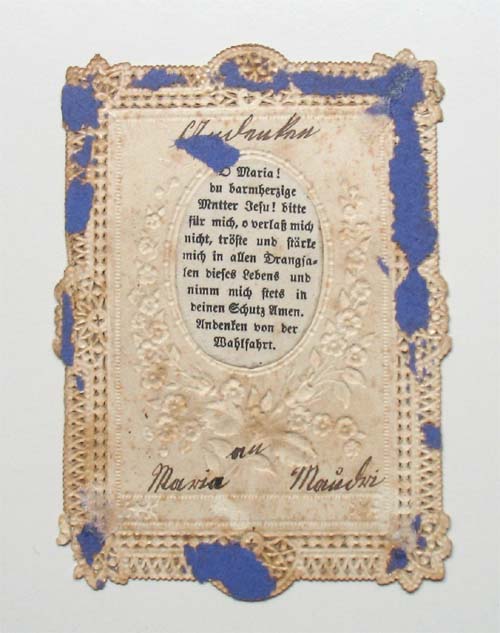 Andenken
O Maria!
du barmherzige
Mntter Jesu! bitte
für mich, o verlaß mich
nicht, tröste und stärke
mich in allen Drangsa-
len dieses Lebens und
nimm mich stets in
deinen Schutz Amen.
Andenken von der
Wahlfahrt.
an
Maria Maudri